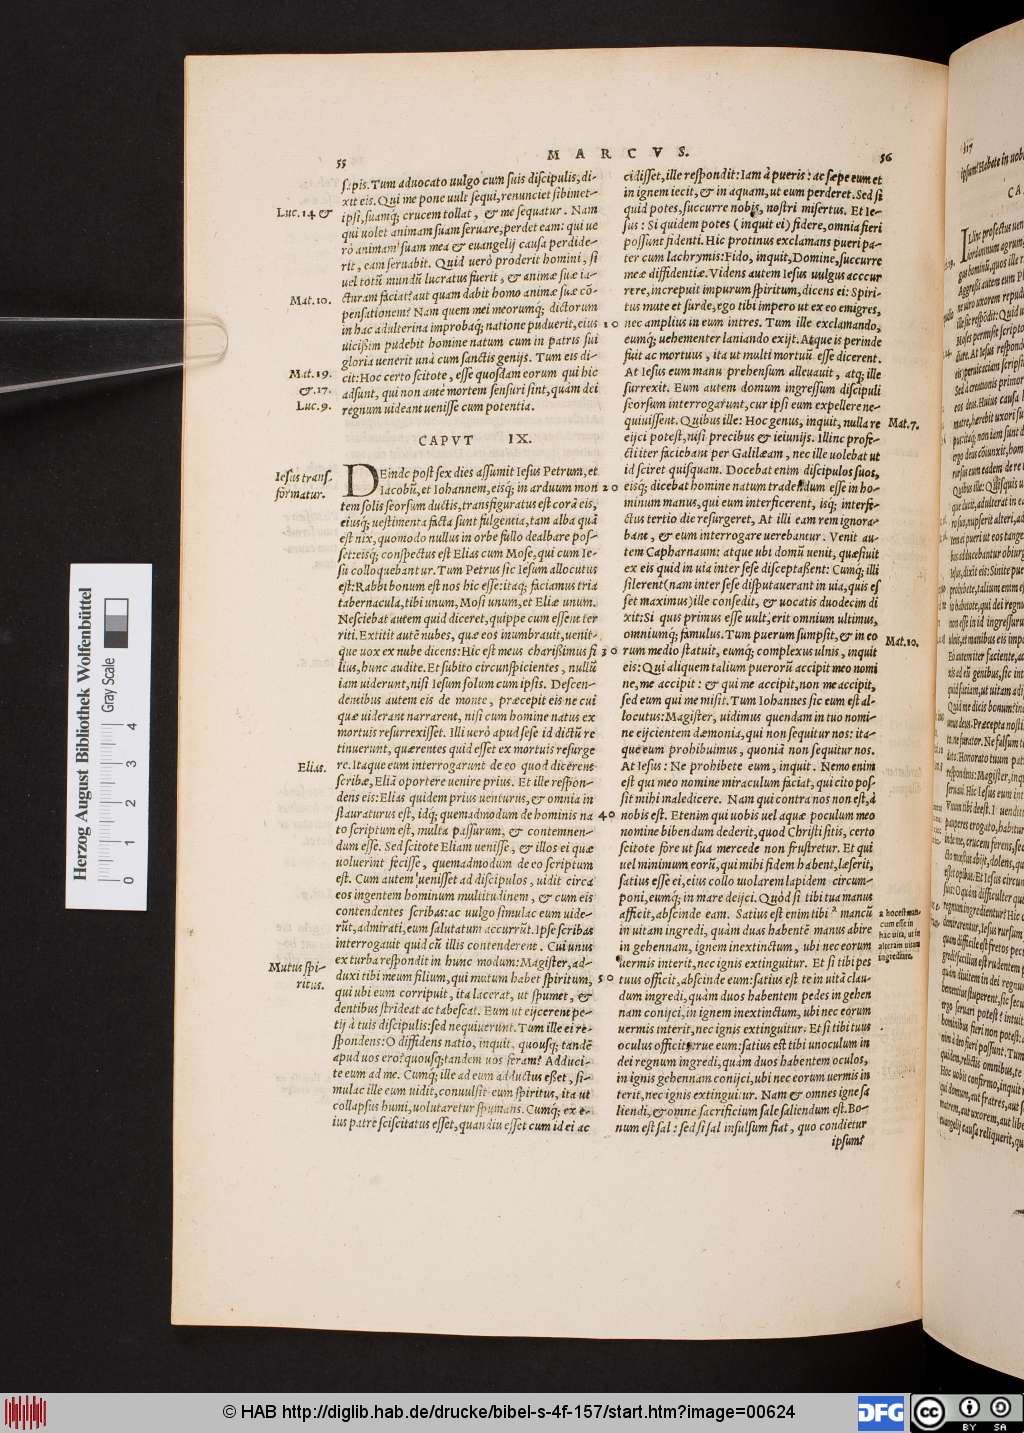 55
MARCVS.
56
sapis. Tum aduocato uulgo cum suis discipulis, di-
xit eis. Qui me pone uult sequi, renunciet sibimet-
Luc. 14 &
ipsi, suamq́; crucem tollat, & me sequatur. Nam
qui uolet animam suam seruare, perdet eam: qui ue
rò animam suam mea & euangelij causa perdide-
rit, eam seruabit. Quid uerò proderit homini, si
uel totũ mundũ lucratus fuerit, & animæ suæ ia-
Mat. 10.
cturam faciat? aut quam dabit homo animæ suæ cō-
pensationem? Nam quem mei meorumq́; dictorum
in hac adulterina improbaq́; natione puduerit, eius
uicißim pudebit homine natum cum in patris sui
gloria uenerit unà cum sanctis genijs. Tum eis di-
Mat. 19.
cit: Hoc certo scitote, esse quosdam eorum qui hic
& 17.
adsunt, qui non ante mortem sensuri sint, quàm dei
Luc. 9.
regnum uideant uenisse cum potentia.
CAPVT IX.
Iesus trans-
formatur.
DEinde post sex dies assumit Iesus Petrum, et
Iacobũ, et Iohannem, eisq́; in arduum mon
tem solis seorsum ductis, transfiguratus est corã eis,
eiusq́; uestimenta facta sunt fulgentia, tam alba quã
est nix, quomodo nullus in orbe fullo dealbare pos-
set: eisq́; conspectus est Elias cum Mose, qui cum Ie-
su colloquebantur. Tum Petrus sic Iesum allocutus
est: Rabbi bonum est nos hic esse: itaq; faciamus tria
tabernacula, tibi unum, Mosi unum, et Eliæ unum.
Nesciebat autem quid diceret, quippe cum essent ter
riti. Extitit autẽ nubes, quæ eos inumbrauit, uenit-
que uox ex nube dicens: Hic est meus charissimus fi
lius, hunc audite. Et subito circunspicientes, nullũ
iam uiderunt, nisi Iesum solum cum ipsis. Descen-
dentibus autem eis de monte, præcepit eis ne cui
quæ uiderant narrarent, nisi cum homine natus ex
mortuis resurrexisset. Illi uerò apud sese id dictũ re
tinuerunt, quærentes quid esset ex mortuis resurge
Elias.
re. Itaque eum interrogarunt de eo quod dicerent
scribæ, Eliã oportere uenire prius. Et ille respon-
dens eis: Elias quidem prius uenturus, & omnia in
stauraturus est, idq́; quemadmodum de hominis na
to scriptum est, multa passurum, & contemnen-
dum esse. Sed scitote Eliam uenisse, & illos ei quæ
uoluerint fecisse, quemadmodum de eo scriptum
est. Cum autem uenisset ad discipulos, uidit circa
eos ingentem hominum multitudinem, & cum eis
contendentes scribas: ac uulgo simulac eum uide-
rũt, admirati, eum salutatum accurrũt. Ipse scribas
interrogauit quid cũ illis contenderent. Cui unus
Mutus spi-
ritus.
ex turba respondit in hunc modum: Magister, ad-
duxi tibi meum filium, qui mutum habet spiritum,
qui ubi eum corripuit, ita lacerat, ut spumet, &
dentibus strideat ac tabescat. Eum ut eijcerent pe-
tij à tuis discipulis: sed nequiuerunt. Tum ille ei re-
spondens: O diffidens natio, inquit, quousq; tandẽ
apud uos ero? quousq; tandem uos feram? Adduci-
te eum ad me. Cumq́; ille ad eum adductus esset, si-
mulac ille eum uidit, conuulsit eum spiritus, ita ut
collapsus humi, uolutaretur spumans. Cumq́; ex e-
ius patre sciscitatus esset, quandiu esset cum id ei ac
cidisset, ille respondit: Iam à pueris: ac sæpe eum et
in ignem iecit, & in aquam, ut eum perderet. Sed si
quid potes, succurre nobis, nostri misertus. Et Ie-
sus: Si quidem potes (inquit ei) fidere, omnia fieri
possunt fidenti. Hic protinus exclamans pueri pa-
ter cum lachrymis: Fido, inquit, Domine, succurre
meæ diffidentiæ. Videns autem Iesus uulgus acccur
rere, increpuit impurum spiritum, dicens ei: Spiri-
tus mute et surde, ego tibi impero ut ex eo emigres,
10 nec amplius in eum intres. Tum ille exclamando,
eumq́; uehementer laniando exijt. Atque is perinde
fuit ac mortuus, ita ut multi mortuũ esse dicerent.
At Iesus eum manu prehensum alleuauit, atq; ille
surrexit. Eum autem domum ingressum discipuli
seorsum interrogarunt, cur ipsi eum expellere ne-
quiuissent. Quibus ille: Hoc genus, inquit, nulla re
Mat. 7.
eijci potest, nisi precibus & ieiunijs. Illinc profe-
cti iter faciebant per Galilæam, nec ille uolebat ut
id sciret quisquam. Docebat enim discipulos suos,
20 eisq́; dicebat homine natum tradendum esse in ho-
minum manus, qui eum interficerent, isq́; interfe-
ctus tertio die resurgeret, At illi eam rem ignora-
bant, & eum interrogare uerebantur. Venit au-
tem Capharnaum: atque ubi domũ uenit, quæsiuit
ex eis quid in uia inter sese disceptaßent: Cumq́; illi
silerent (nam inter sese disputauerant in uia, quis es
set maximus) ille consedit, & uocatis duodecim di
xit: Si quis primus esse uult, erit omnium ultimus,
omniumq́; famulus. Tum puerum sumpsit, & in eo
Mat. 10.
30 rum medio statuit, eumq́; complexus ulnis, inquit
eis: Qui aliquem talium puerorũ accipit meo nomi
ne, me accipit: & qui me accipit, non me accipit,
sed eum qui me misit. Tum Iohannes sic eum est al-
locutus: Magister, uidimus quendam in tuo nomi-
ne eijcientem dæmonia, qui non sequitur nos: ita-
que eum prohibuimus, quoniã non sequitur nos.
At Iesus: Ne prohibete eum, inquit. Nemo enim
est qui meo nomine miraculum faciat, qui cito pos-
sit mihi maledicere. Nam qui contra nos non est, à
40 nobis est. Etenim qui uobis uel aquæ poculum meo
nomine bibendum dederit, quod Christi sitis, certo
scitote fore ut sua mercede non frustretur. Et qui
uel minimum eorũ, qui mihi fidem habent, læserit,
satius esse ei, eius collo molarem lapidem circum-
poni, eumq́; in mare deijci. Quòd si tibi tua manus
afficit, abscinde eam. Satius est enim tibi ᵃ mancũ
a hoc est man-
cum esse in
hac uita, ut in
alteram uitam
ingrediare.
in uitam ingredi, quàm duas habentẽ manus abire
in gehennam, ignem inextinctum, ubi nec eorum
uermis interit, nec ignis extinguitur. Et si tibi pes
50 tuus officit, abscinde eum: satius est te in uitã clau-
dum ingredi, quàm duos habentem pedes in gehen
nam conijci, in ignem inextinctum, ubi nec eorum
uermis interit, nec ignis extinguitur. Et si tibi tuus
oculus officit, erue eum: satius est tibi unoculum in
dei regnum ingredi, quàm duos habentem oculos,
in ignis gehennam conijci, ubi nec eorum uermis in
terit, nec ignis extinguitur. Nam & omnes igne sa
liendi, & omne sacrificium sale saliendum est. Bo-
num est sal: sed si sal insulsum fiat, quo condietur
ipsum?
Herzog August Bibliothek Wolfenbüttel
Gray Scale
0 1 2 3 4
© HAB http://diglib.hab.de/drucke/bibel-s-4f-157/start.htm?image=00624
DFG
cc
BY SA